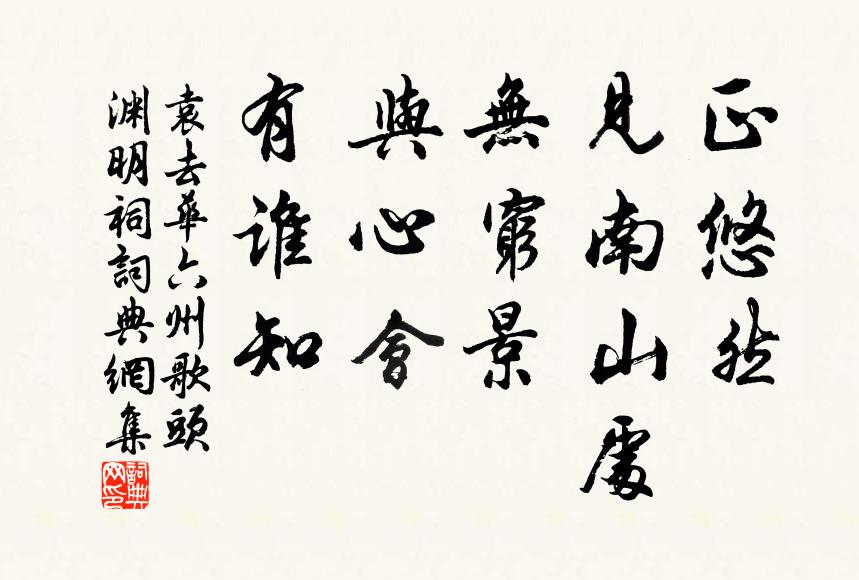 正悠然
見南山處
無窮景
與心會
有誰知
袁去華六州歌頭
淵明祠詞典網集
詞典网印